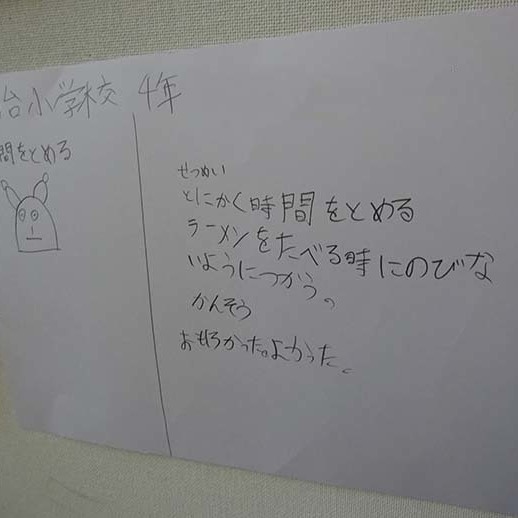 治小学校 4年
間をとめる
せつめい
とにかく時間をとめる
ラーメンをたべる時にのびな
いようにつかう。
かんそう
おもろかった。よかった。